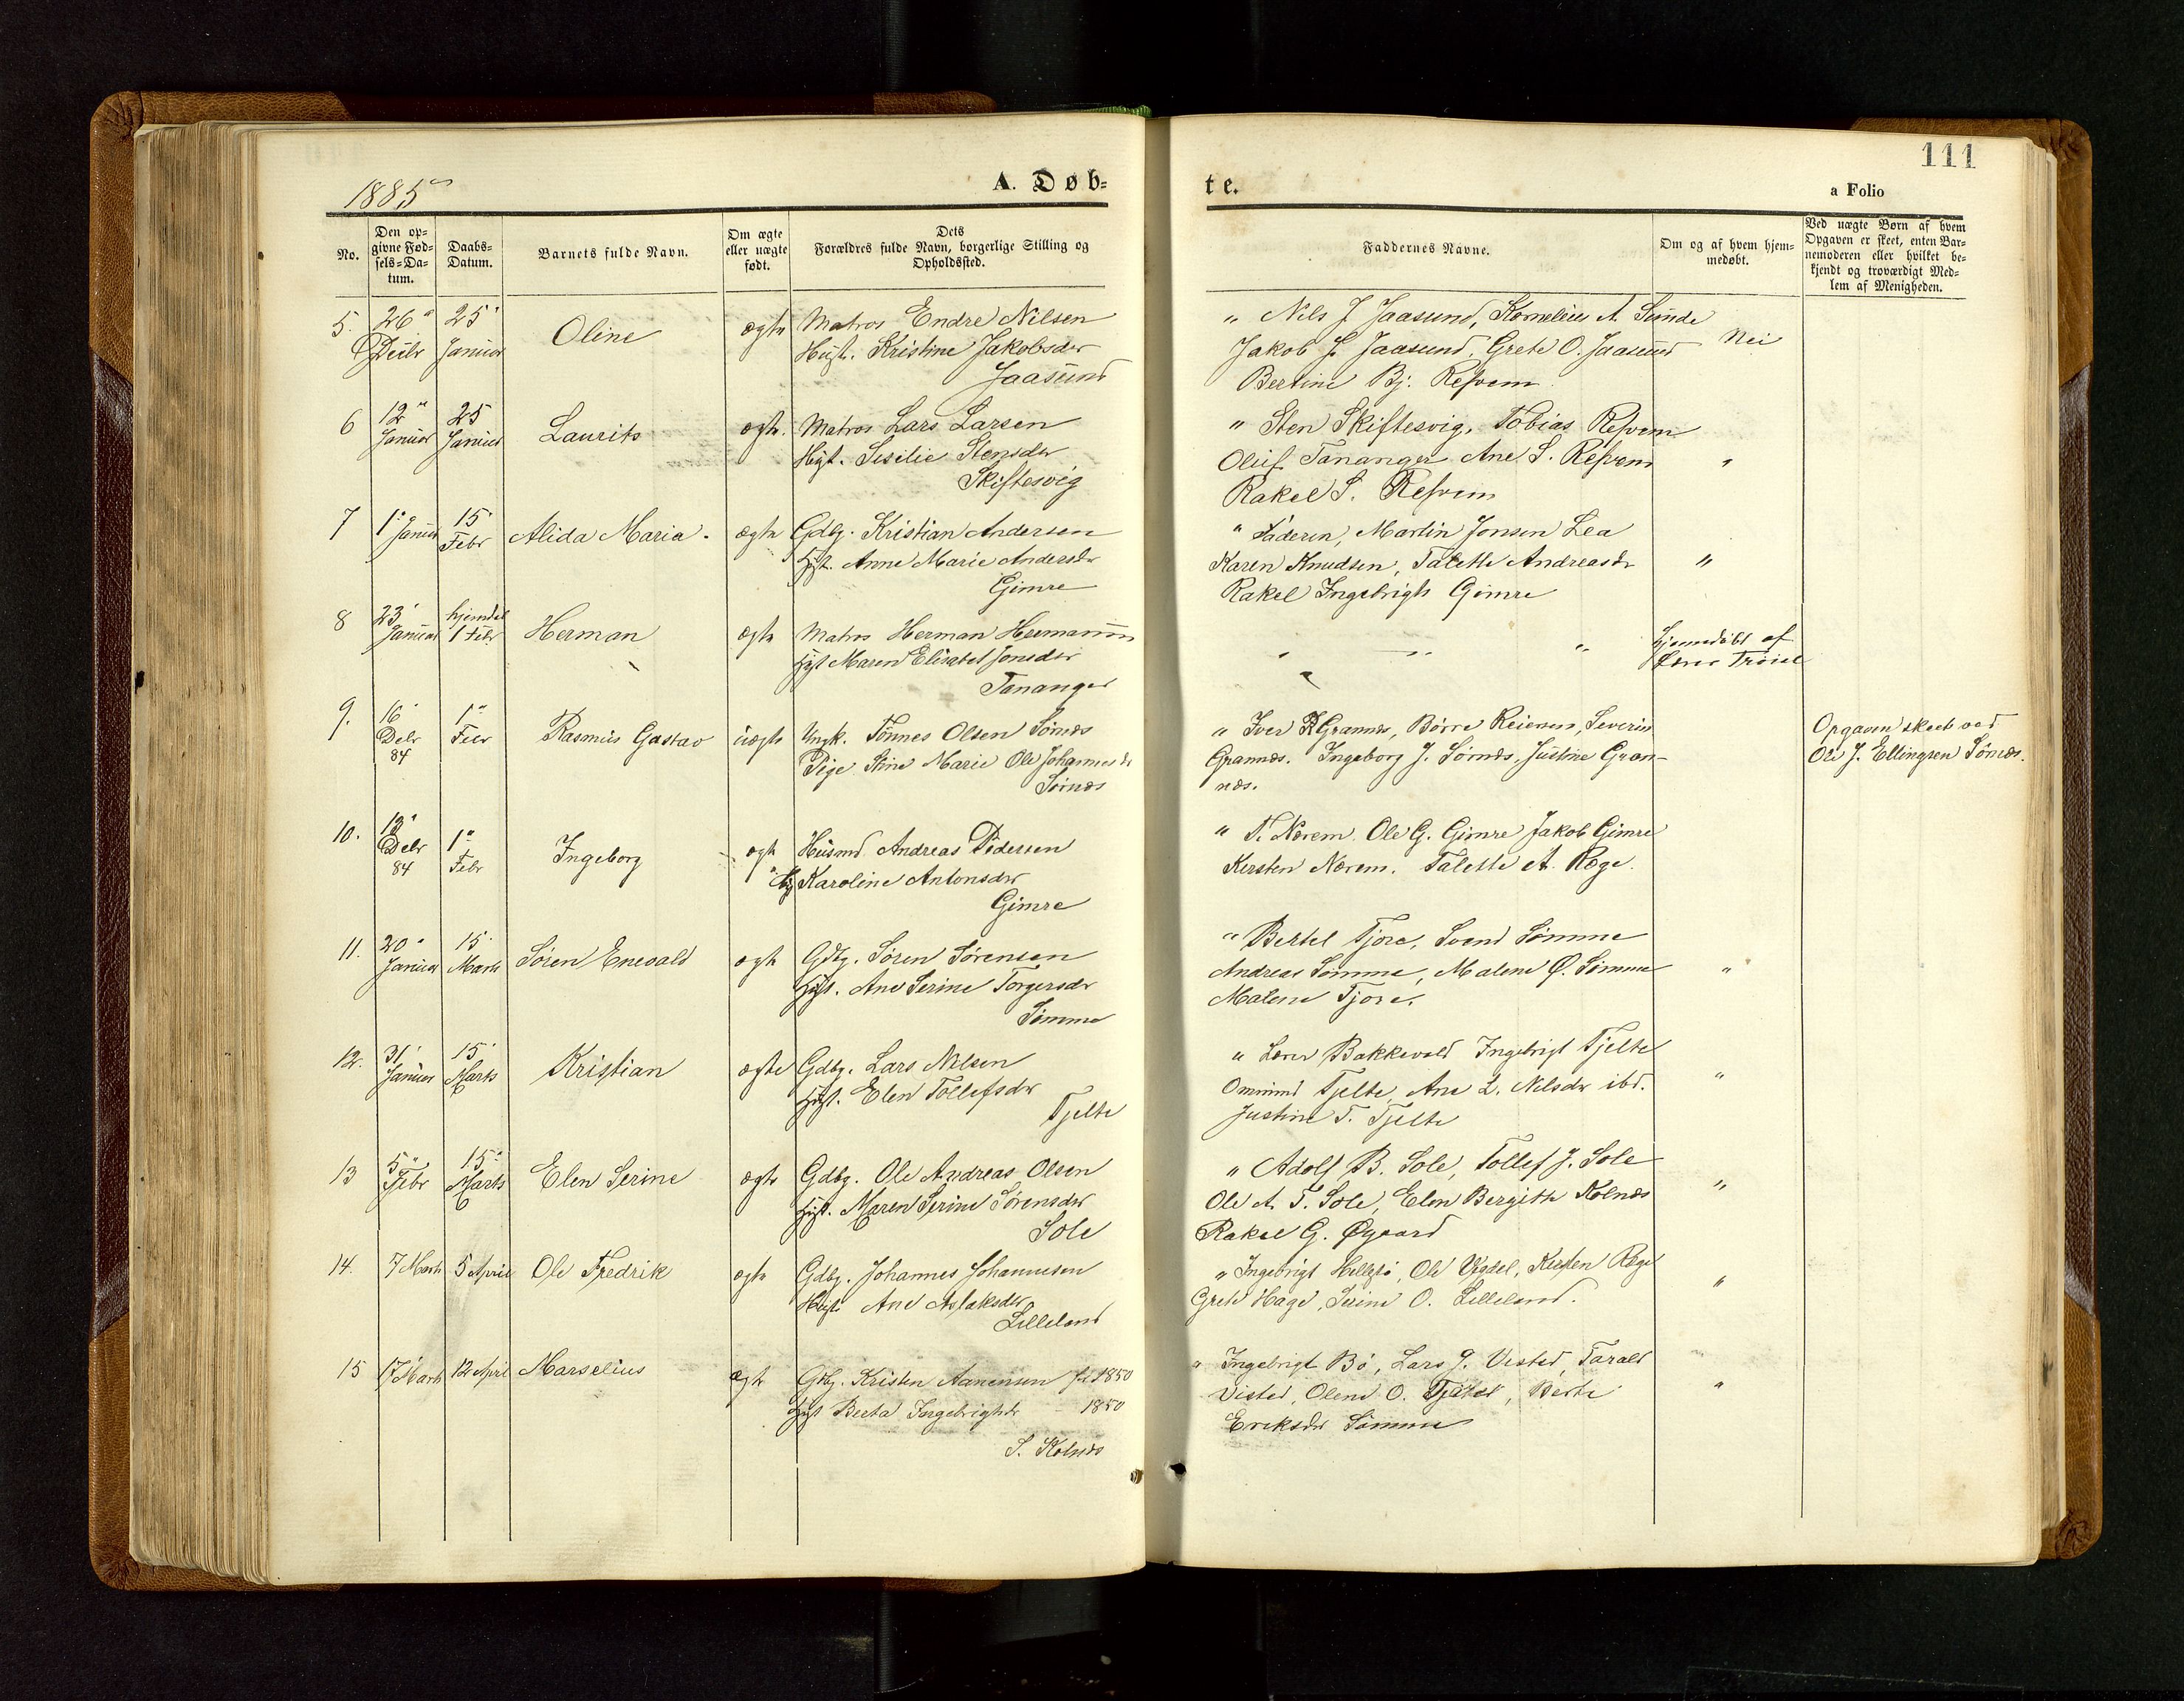 1885
A. Døb-
te.
111
a Folio
No.
Den op-
givne Fød-
sels-Da-
tum.
Daabs-
Datum.
Barnets fulde Navn.
Om ægte
eller uægte
født.
Dets
Forældres fulde Navn, borgerlige Stilling og
Opholdssted.
Faddernes Navne.
Om og af hvem hjem-
medøbt.
Ved uægte Børn af hvem
Opgaven er skeet, enten Bar-
nemoderen eller hvilket be-
kjendt og troværdigt Med-
lem af Menigheden.
5.
26
25
Januar
Oline
ægte
Matros Endre Nilsen
Hust. Kristine Jakobsdr
Jaasund
" Nils J Jaasund, Kornelius A. Sunde
Jakob J. Jaasund, Grete O. Jaasund
Bertine Bj. Refvem
Nei
6
12"
Januar
25
Januar
Laurits
ægte.
Matros Lars Larsen
Hust. Sesilie Stensdr
Skiftesvig
" Sten Skiftesvig, Tobias Refvem
Oluf Tananger Ane S. Refvem
Rakel S. Refvem
"
7
1" Januar
15
Febr
Alida Maria.
ægte
Gdbg. Kristian Andersen
Hst. Anne Marie Andersdr
Gimre
" Faderen, Martin Jonsen Lea
Karen Knudsen, Talette Andreasdr
Rakel Ingebrigts Gimre
"
8
23
Januar
hjemdøbt
1 Febr
Herman
ægte
Matros Herman Hermansen
Hst Maren Elisabet Jonsdr
Tananger
" " "
hjemmedøbt af
Lærer Trøiel
9.
16
Debr
84
1"
Febr
Rasmus Gustav
uægte
Ungk. Tønnes Olsen Sørnæs
Pige Stine Marie Ole Johannesdr
Sørnæs
" Iver R Grannæs, Børre Reiersen, Severin
Grannæs. Ingeborg J. Sørnæs, Justine Gran-
næs.
Opgaven skeet ved
Ole J. Ellingsen Sørnæs.
10.
Debr
84
1"
Febr
Ingeborg
ægte
Husmd Andreas Pedersen
Karoline Antonsdr
Gimre
" T. Nærem. Ole G. Gimre Jakob Gimre
Kirsten Nærem. Talette A. Røge.
11.
20"
Januar
15
Marts
Søren Enevald
ægte
Gdbg. Søren Sørensen
Hst. Ane Serine Torgersdr
Sømme
" Bertel Tjora, Svend Sømme
Andreas Sømme, Malene Ø. Sømme
Malene Tjora.
"
12.
31
Januar
15
Marts
Kristian
ægte
Gdbg. Lars Nilsen
Hst. Elen Tollefsdr
Tjelte
" Lærer Bakkevold Ingebrigt Tjelte
Ommund Tjelte, Ane L. Nilsdr ibd.
Justine T. Tjelte
"
13
5"
Febr
15"
Marts
Elen Serine
ægte
Gdbg. Ole Andreas Olsen
Hst. Maren Serine Sørensdr
Sole
" Adolf B. Sole, Tollef J. Sole
Ole A. T. Sole, Elen Bergitte Kolnæs
Rakel G. Øgaard
"
14.
7 Marts
5 April
Ole Fredrik
ægte
Gdbg. Johannes Johannesen
Hust. Ane Aslaksdr
Lilleland
" Ingebrigt Hellestø, Ole Vigdel, Kirsten Røge
Grete Hage, Serine O. Lilleland.
"
15
17 Marts
12 April
Marselius
ægte
Gdbg. Kristen Aanensen fd 1850
Hst Berta Ingebrigtsdr - 1850
S. Kolnæs
" Ingebrigt Bø, Lars G. Visted, Tarald
Visted, Olene O. Tjaland, Berte
Eriksdr Sømme
"